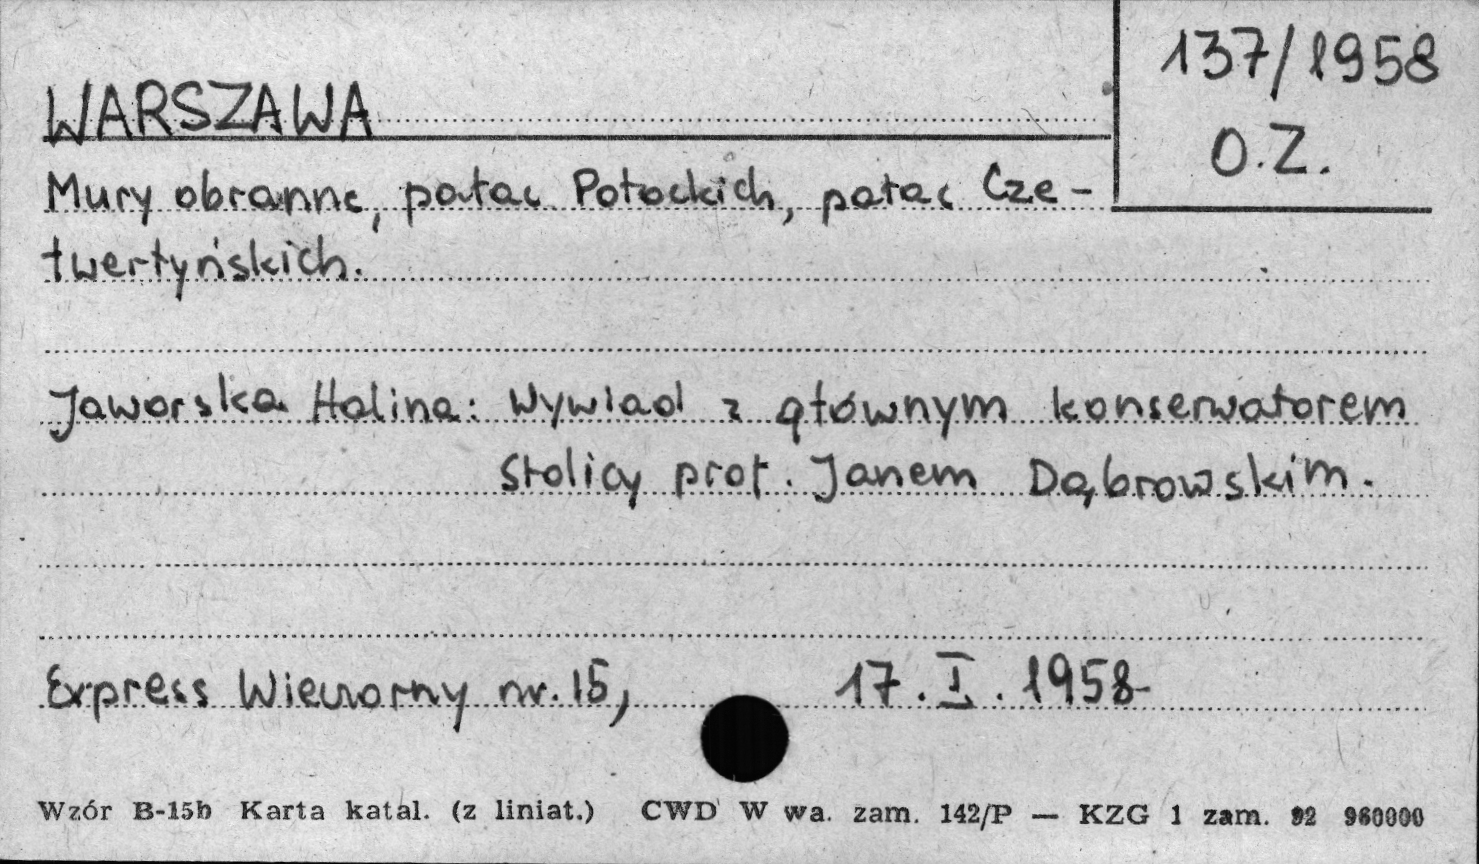 137/1958
O.Z.
WARSZAWA
Mury obronne, pałac Potockich, pałac Cze-
twertyńskich.
Jaworska Halina: Wywiad z głównym konserwatorem
stolicy prof. Janem Dąbrowskim.
Express Wieczorny nr. 15, 17. I. 1958
Wzór B-15b Karta katal. (z liniat.) CWD W wa. zam. 142/P — KZG 1 zam. 92 960000